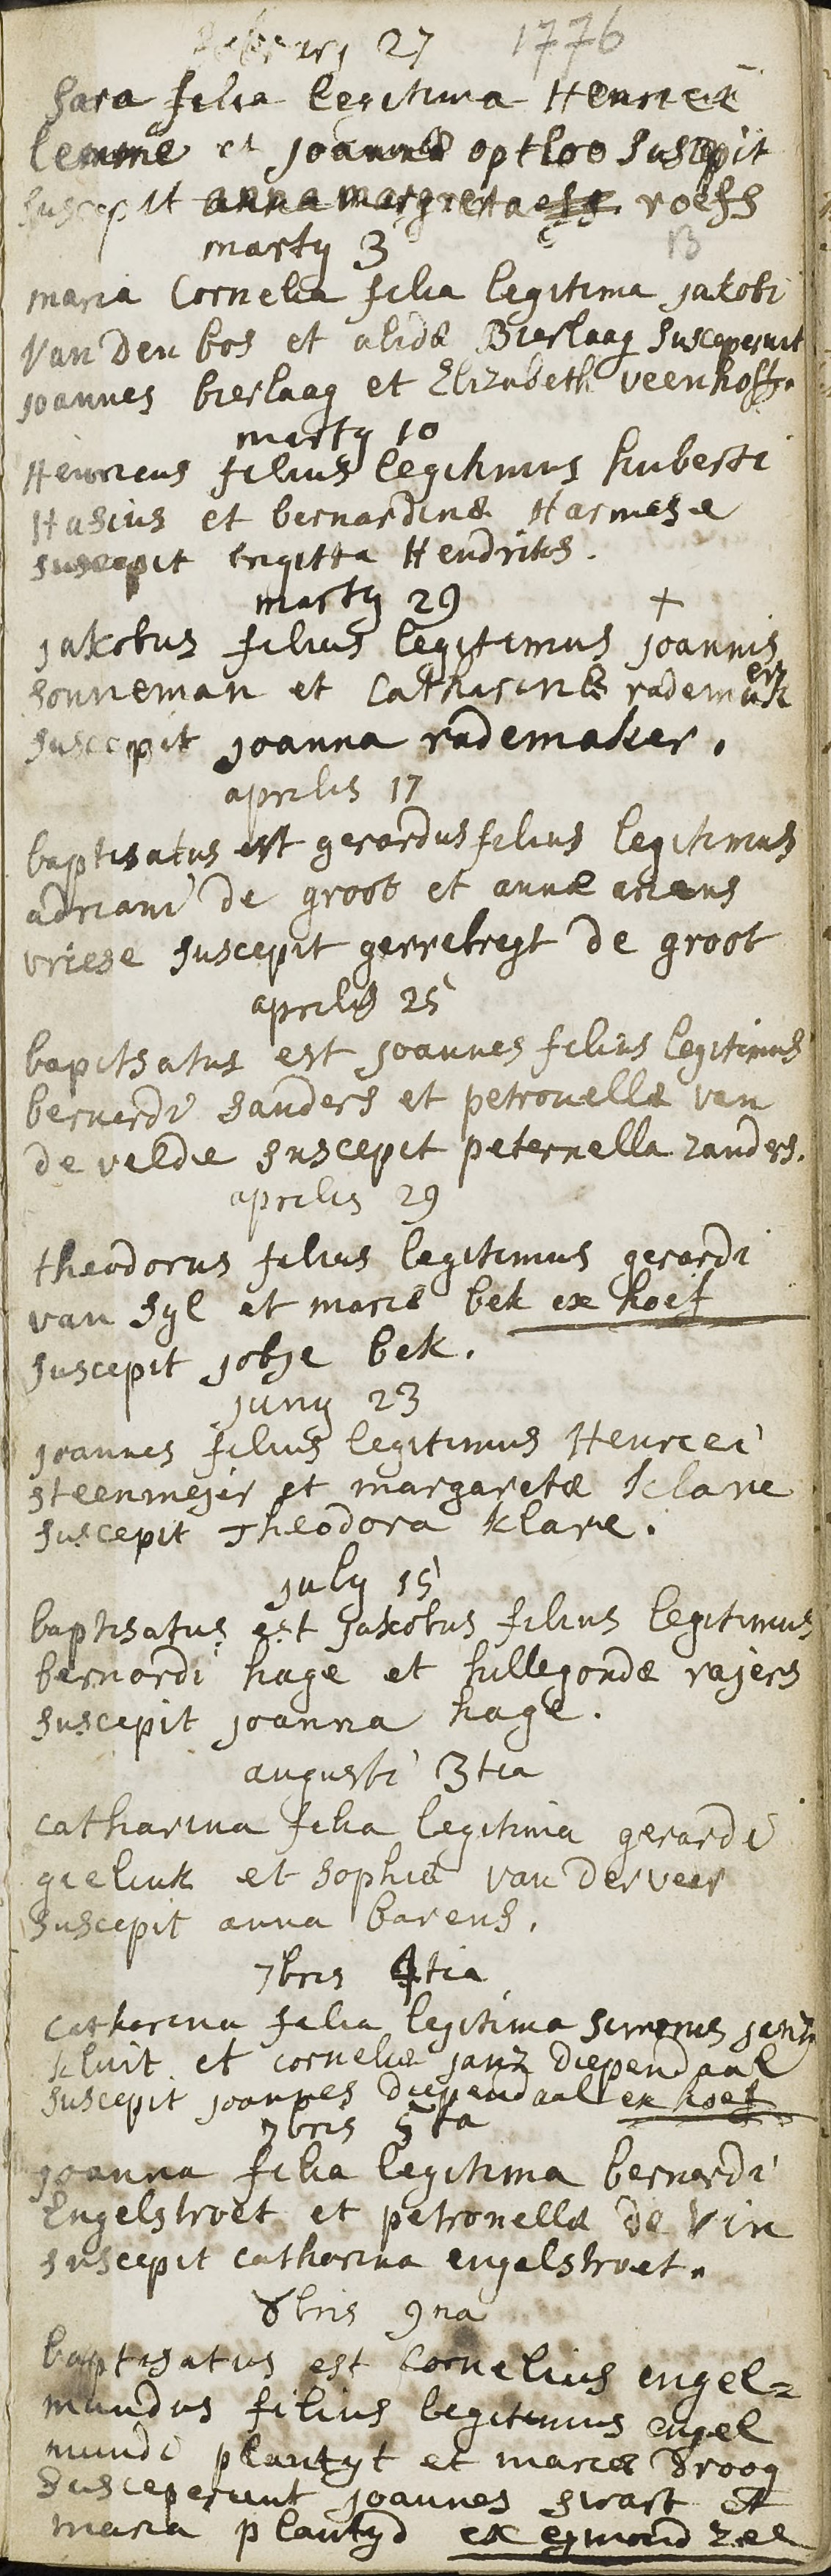 februarj 27 1776
Sara filia legitima Henrici
lemme et joannæ optloo suscepit
suscepit anna margreta roefs
13
martij 3
maria Cornelia filia legitima jakobi
Van den bos et alidæ Bierlaag susceperunt
joannes bierlaag et Elizabeth veenhoff.
martij 10
Henricus filius legitimus huberti
Hasius et bernardinæ Harmese
suscepit brigitta Hendriks.
martij 29 +
jakobus filius legitimus joannis
sonneman et Catharinæ rademakers
suscepit joanna rademaker.
aprilis 17
baptisatus est gerardus filius legitimus
adriani de groot et annæ ariens
vriese suscepit gerrebregt de groot
aprilis 25
bapitsatus est joannes filius legitimus
bernardi sanders et petronellæ van
de velde suscepit peternella zanders.
aprilis 29
theodorus filius legitimus gerardi
van syl et mariæ bek ex hoef
suscepit jobje bek.
junij 23
joannes filius legitimus Henrici
steenmejer et margaretæ klare
suscepit Theodora klare.
julij 15
baptisatus est jakobus filius legitimus
bernardi hage et hillegondæ rajers
suscepit joanna hage.
augusti 3tia
catharina filia legitima gerardi
gielink et sophiæ van der veer
suscepit anna barens.
7bris 4tia
catharina filia legitima simonis janz
kluit et corneliæ janz diependaal
suscepit joannes diependaal ex hoef
7bris 5ta
joanna filia legitima bernardi
Engelstroet et petronellæ de Vin
suscepit catharina engelstroet.
8bris 9na
baptisatus est Cornelius engel=
mundus filius legitimus engel
mundi plantyt et mariæ droog
susceperunt joannes swart et
maria plantyd ex egmond zee